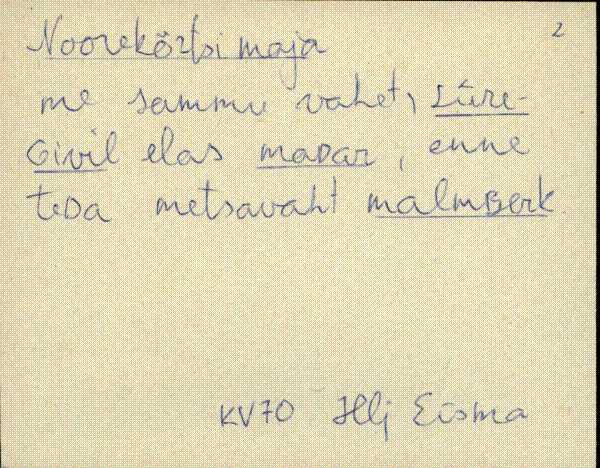 2
Noorekõrtsi maja
me sammu vahet,
elas maDar, enne
teDa metsavaht malmBerk
KV70 Hlj Eisma